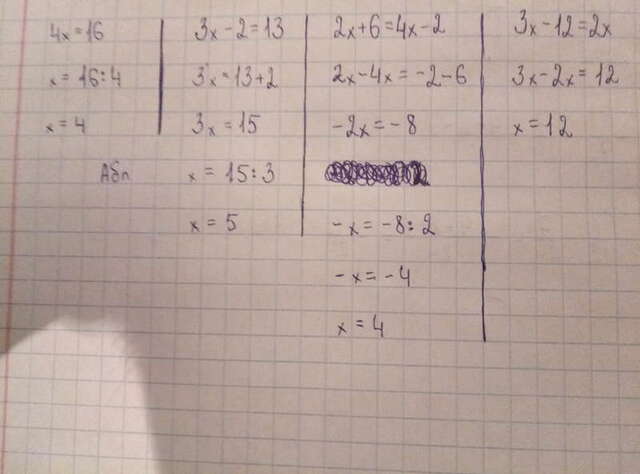 4x=16
x=16:4
x=4
Абп
3x-2=13
3x=13+2
3x=15
x=15:3
x=5
2x+6=4x-2
2x-4x=-2-6
-2x=-8
-x=-8:2
-x=-4
x=4
3x-12=2x
3x-2x=12
x=12